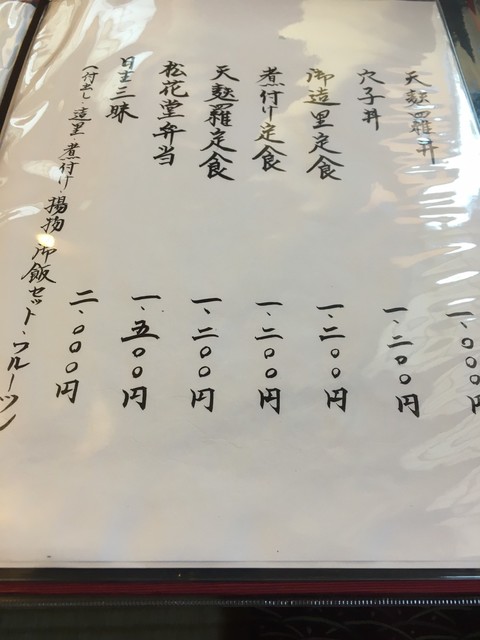 天麩羅丼 一、〇〇〇円
穴子丼 一、二〇〇円
御造里定食 一、二〇〇円
煮付け定食 一、二〇〇円
天麩羅定食 一、二〇〇円
松花堂弁当 一、五〇〇円
日生三昧 二、〇〇〇円
(付出し・造里・煮付け・揚物・御飯セット・フルーツ)